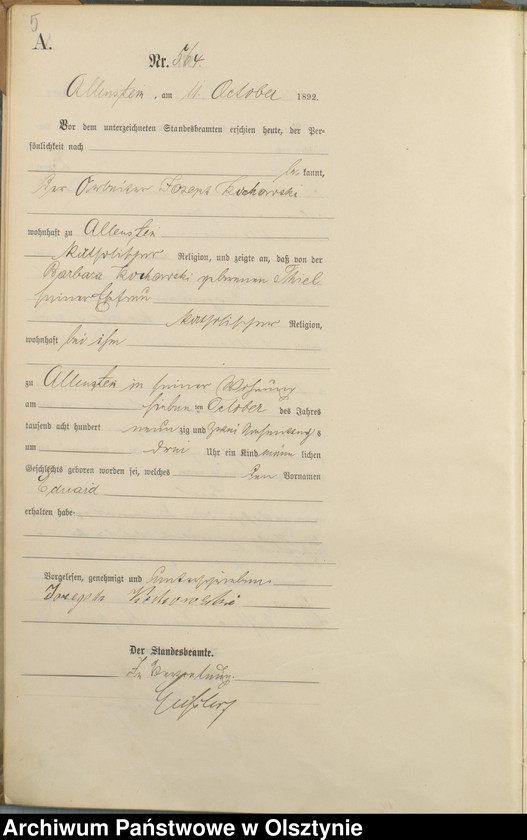 5
A.
Nr. 564.
Allenstein, am 11. October 1892.
Vor dem unterzeichneten Standesbeamten erschien heute, der Per-
sönlichkeit nach
be kannt,
der Arbeiter Joseph Kochowski
wohnhaft zu Allenstein
katholischer Religion, und zeigte an, daß von der
Barbara Kochowski geborenen Thiel
seiner Ehefrau
katholischer Religion,
wohnhaft bei ihm
zu Allenstein in seiner Wohnung
am sieben ten October des Jahres
tausend acht hundert neun zig und zwei
um drei Uhr ein Kind männ lichen
Geschlechts geboren worden sei, welches den Vornamen
Eduard
erhalten habe
Vorgelesen, genehmigt und unterschrieben
Joseph Kochowski
Der Standesbeamte.
In Vertretung